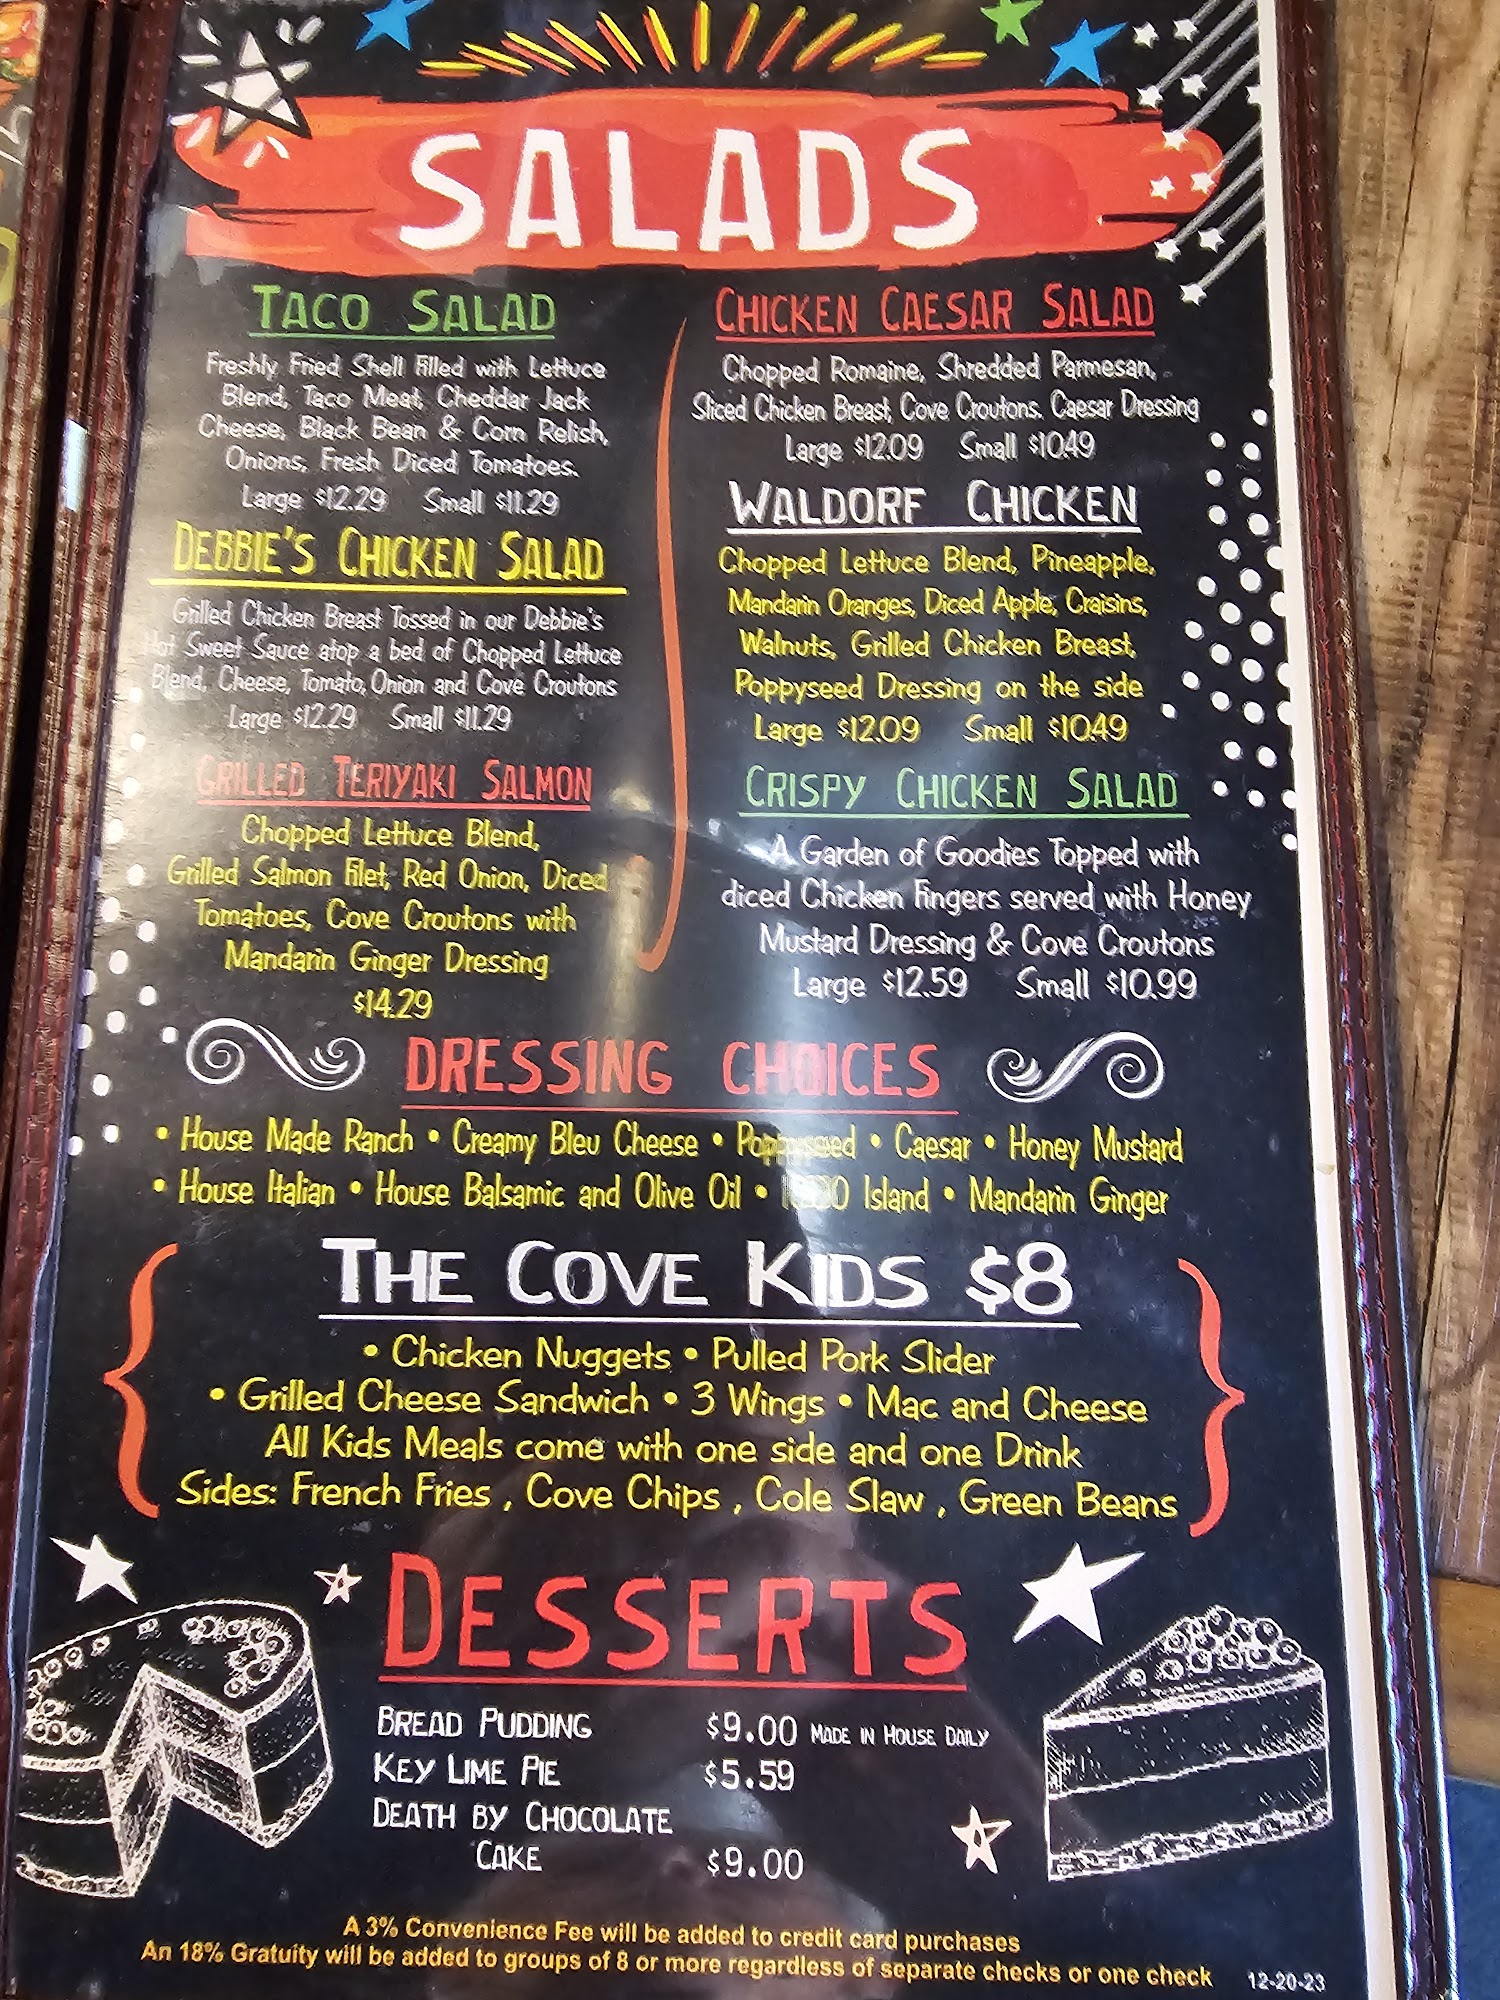 SALADS
TACO SALAD
Freshly Fried Shell Filled with Lettuce
Blend, Taco Meat, Cheddar Jack
Cheese, Black Bean & Corn Relish,
Onions, Fresh Diced Tomatoes.
Large $12.29 Small $11.29
DEBBIE'S CHICKEN SALAD
Grilled Chicken Breast Tossed in our Debbie's
Hot Sweet Sauce atop a bed of Chopped Lettuce
Blend, Cheese, Tomato, Onion and Cove Croutons
Large $12.29 Small $11.29
GRILLED TERIYAKI SALMON
Chopped Lettuce Blend,
Grilled Salmon Filet, Red Onion, Diced
Tomatoes, Cove Croutons with
Mandarin Ginger Dressing
$14.29
CHICKEN CAESAR SALAD
Chopped Romaine, Shredded Parmesan,
Sliced Chicken Breast, Cove Croutons. Caesar Dressing
Large $12.09 Small $10.49
WALDORF CHICKEN
Chopped Lettuce Blend, Pineapple,
Mandarin Oranges, Diced Apple, Craisins,
Walnuts, Grilled Chicken Breast,
Poppyseed Dressing on the side
Large $12.09 Small $10.49
CRISPY CHICKEN SALAD
A Garden of Goodies Topped with
diced Chicken Fingers served with Honey
Mustard Dressing & Cove Croutons
Large $12.59 Small $10.99
DRESSING CHOICES
• House Made Ranch • Creamy Bleu Cheese • Poppyseed • Caesar • Honey Mustard
• House Italian • House Balsamic and Olive Oil • 1000 Island • Mandarin Ginger
THE COVE KIDS $8
• Chicken Nuggets • Pulled Pork Slider
• Grilled Cheese Sandwich • 3 Wings • Mac and Cheese
All Kids Meals come with one side and one Drink
Sides: French Fries , Cove Chips , Cole Slaw , Green Beans
DESSERTS
BREAD PUDDING $9.00 MADE IN HOUSE DAILY
KEY LIME PIE $5.59
DEATH BY CHOCOLATE
CAKE $9.00
A 3% Convenience Fee will be added to credit card purchases
An 18% Gratuity will be added to groups of 8 or more regardless of separate checks or one check 12-20-23